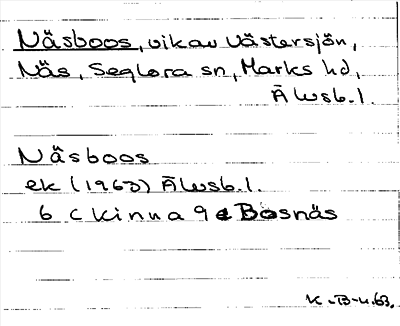 Näsboos, vik av Västersjön,
Näs, Seglora sn, Marks hd,
Älvsb. l.
Näsboos
ek (1963) Älvsb. l.
6 C Kinna 9 e Bosnäs
K.-B-u.63.